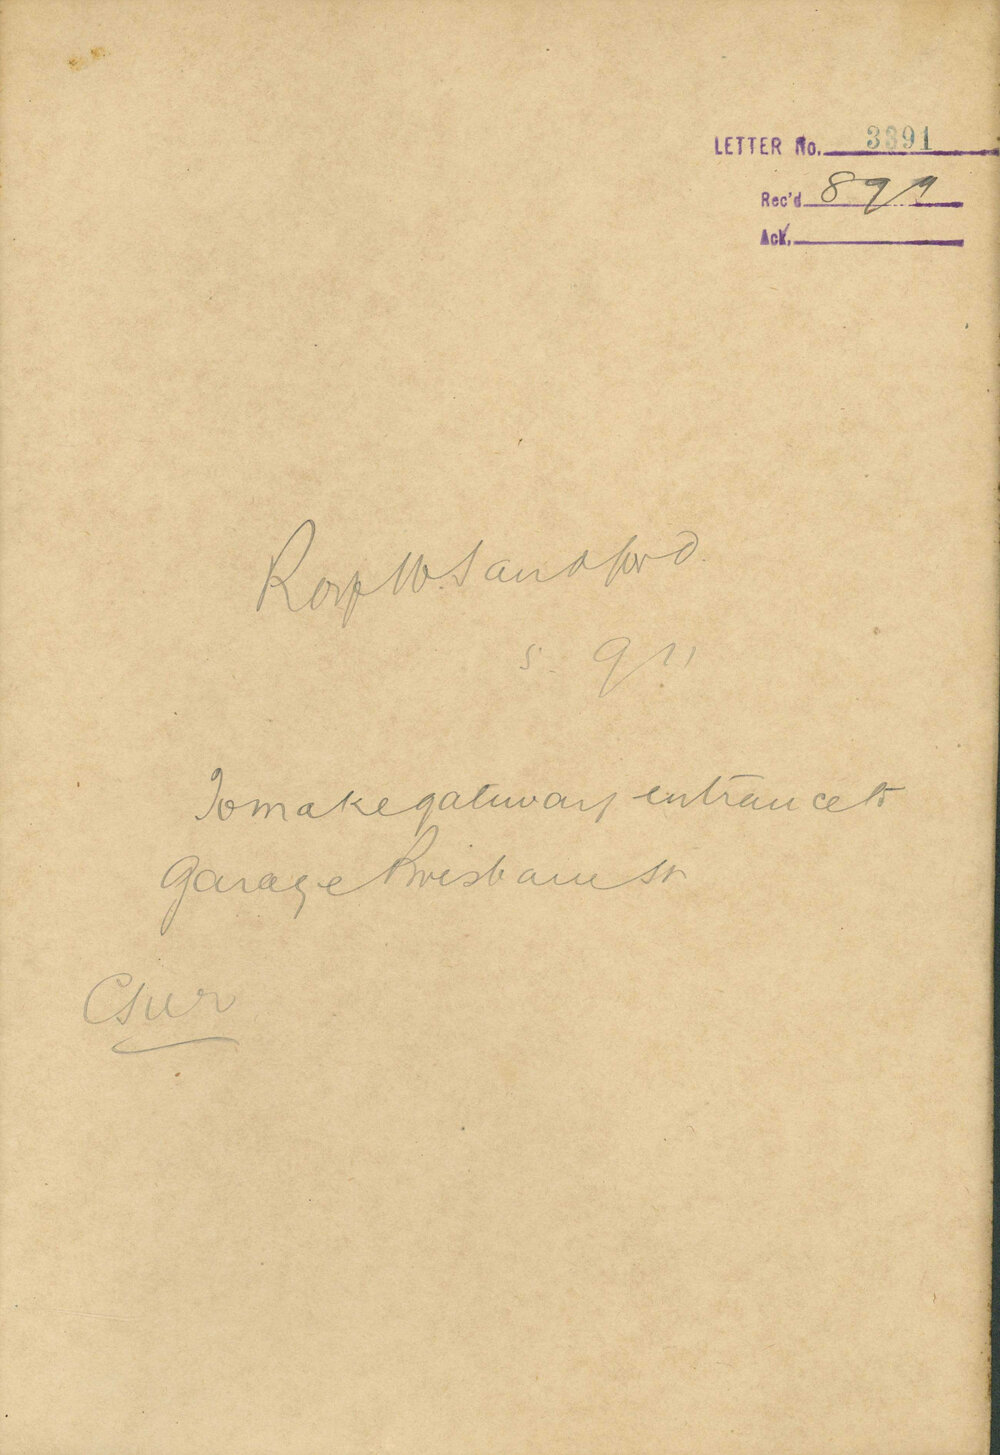 LETTER No. 3391
Rec'd 8 9 11
Ack.
W. Sandford
5 9 11
To make gateway entrance to
Garage Brisbane St